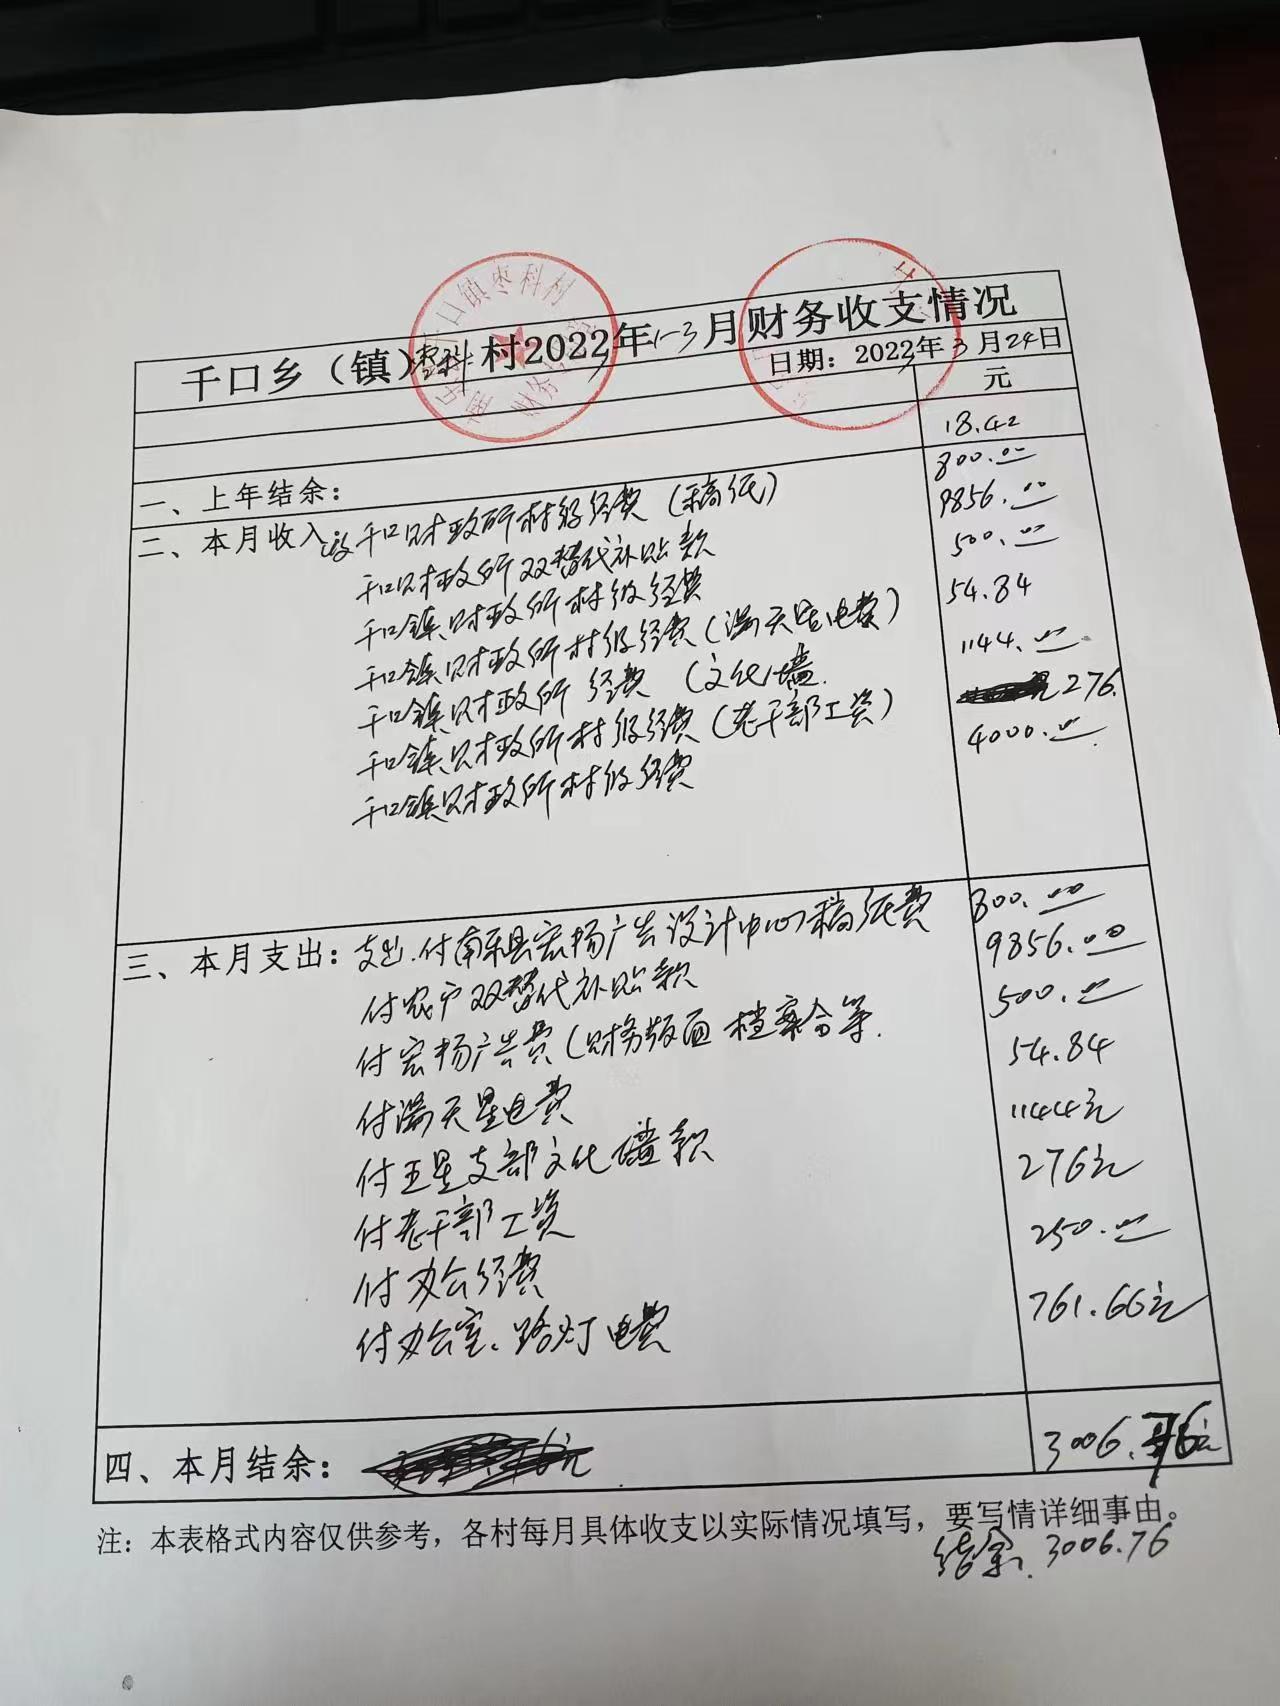 千口乡（镇）枣科村2022年1-3月财务收支情况
日期：2022年3月24日
元
一、上年结余： 18.42
二、本月收入 收千口财政所村级经费（稿纸） 800.00
千口财政所双替代补贴款 9856.00
千口镇财政所村级经费 500.00
千口镇财政所村级经费（满天星电费） 54.84
千口镇财政所 经费 （文化墙 1144.00
千口镇财政所村级经费（老干部工资） 276.
千口镇财政所村级经费 4000.00
三、本月支出：支出.付南乐县宏扬广告设计中心稿纸费 800.00
付农户双替代补贴款 9856.00
付宏扬广告费（财务版面 档案合等. 500.00
付满天星电费 54.84
付五星支部文化墙款 1144元
付老干部工资 276元
付办公经费 250.00
付办公室、路灯电费 761.66元
四、本月结余： 3006.76元
注：本表格式内容仅供参考，各村每月具体收支以实际情况填写，要写情详细事由。
结余. 3006.76
千口镇枣科村
财务